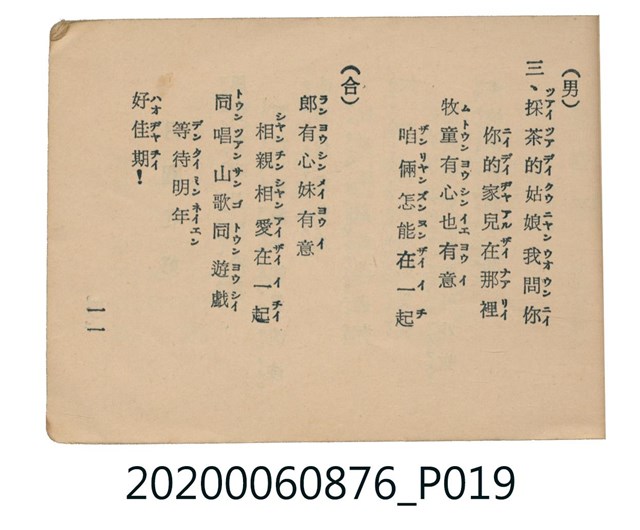 （男）
三、採茶的姑娘我問你
ツアイ ツア デイ クウ ニヤン ウオ ウン ニイ
你的家兒在那裡
ニイ デイ ヂヤ アル ザイ ナア リイ
牧童有心也有意
ム トウン ヨウ シン イエ ヨウ イ
咱倆怎能在一起
ザン リヤン ズン ヌン ザイ イ チ
（合）
郎有心妹有意
ラン ヨウ シン メイ ヨウ イ
相親相愛在一起
シヤン チン シヤン アイ ザイ イ チイ
同唱山歌同遊戲
トウン ツアン サン ゴ トウン ヨウ シイ
等待明年
デン タイ ミン ネイエン
好佳期！
ハオ ヂヤ チイ
一一
20200060876_P019